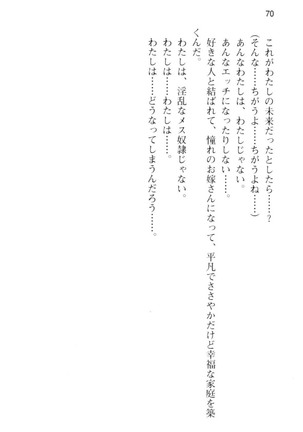 70
これがわたしの未来だったとしたら……?
(そんな……ちがうよ……ちがうよね……)
あんなわたしは、わたしじゃない。
あんなエッチになったりしない……。
好きな人と結ばれて、憧れのお嫁さんになって、平凡でささやかだけど幸福な家庭を築
くんだ。
わたしは、淫乱なメス奴隷じゃない。
わたしは……わたしは……。
わたしは……どうなってしまうんだろう……。